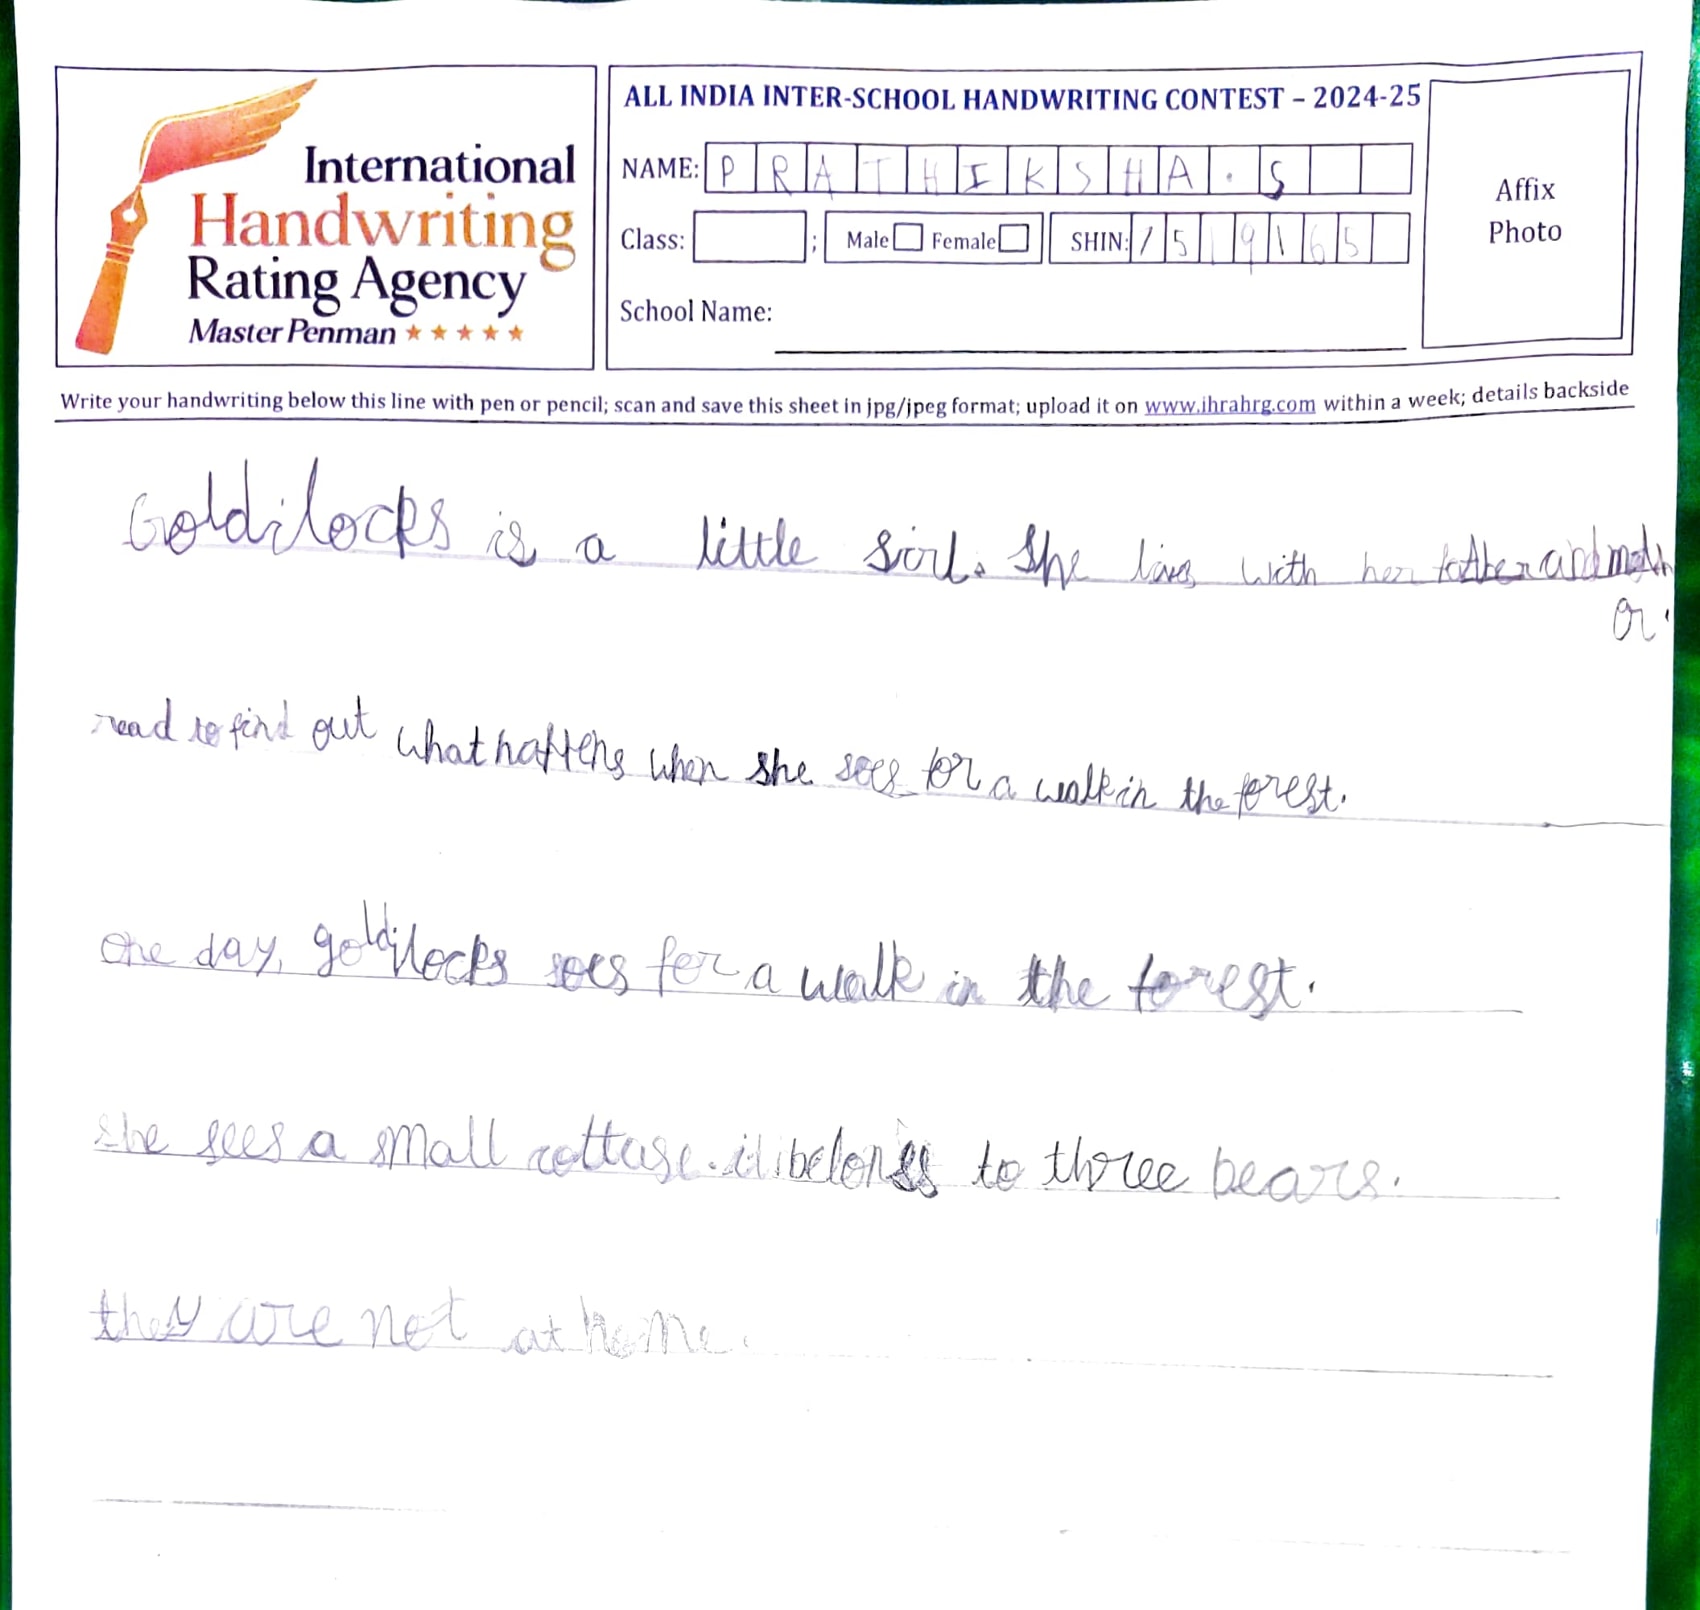 International
Handwriting
Rating Agency
Master Penman
ALL INDIA INTER-SCHOOL HANDWRITING CONTEST – 2024-25
NAME: PRATHIKSHA.S
Class: ; Male Female SHIN: 7519165
School Name:
Affix
Photo
Write your handwriting below this line with pen or pencil; scan and save this sheet in jpg/jpeg format; upload it on www.ihrahrg.com within a week; details backside
Goldilocks is a little girl. She lives with her father and moth
er.
read to find out what happens when she goes for a walk in the forest.
one day, goldilocks goes for a walk in the forest.
she sees a small cottage. it belongs to three bears.
they are not at home.